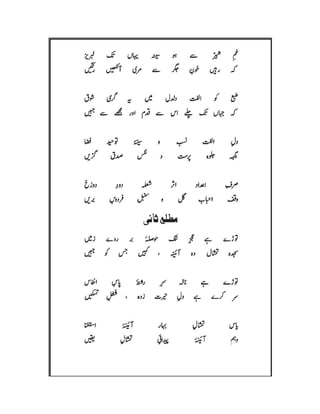 غمِ شبّیر سے ہو سینہ یہاں تک لبریز
کہ رہیں خونِ جگر سے مری آنکھیں رنگیں
طبع کو الفتِ دلدل میں یہ گرمیِ شوق
کہ جہاں تک چلے اس سے قدم اور مجھ سے جبیں
دلِ الفت نسب و سینۂ توحید فضا
نگہِ جلوہ پرست و نفسِ صدق گزیں
صرفِ اعدا اثرِ شعلۂ دودِ دوزخ
وقفِ احباب گل و سنبلِ فردوسِ بریں
مطلع ثانی
توڑے ہے عجزِ تنک حوصلہ بر روئے زمیں
سجدہ تمثال وہ آئینہ، کہیں جس کو جبیں
توڑے ہے نالہ سرِ رشتۂ پاسِ انفاس
سر کرے ہے دلِ حیرت زدہ، شغلِ تسکیں
یاس تمثالِ بہار آئینۂ استغنا
وہم آئینۂ پیدائیِ تمثالِ یقیں